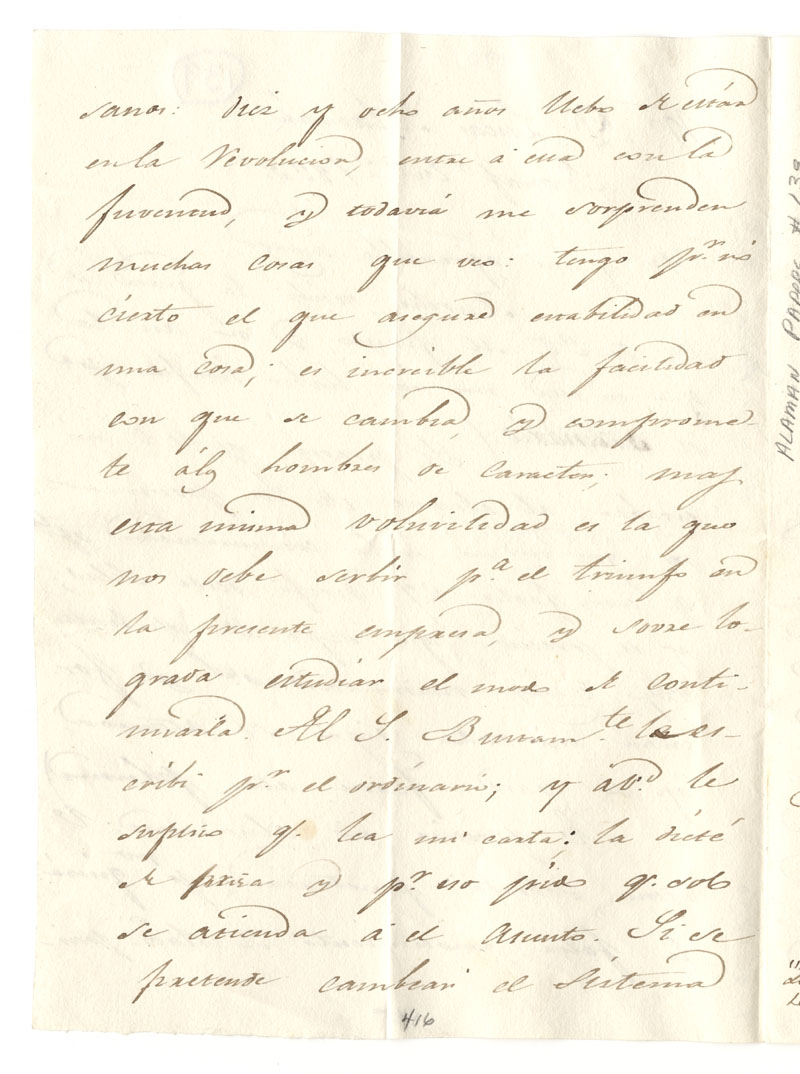 sanos: diez y ocho años llebo de estár
en la revolucion, entre á ella con la
juventud, y todavia me sorprenden
muchas cosas que veo: tengo p.r nó
cierto el que asegure estabilidad en
una cosa; es increible la facilidad
con que se cambia, y comprome-
te á los hombres de caracter; mas
esta misma volubilidad es la que
nos debe serbir p.a el triunfo en
la presente empresa, y sovre lo-
grada estudiar el modo de conti-
nuarla. Al S. Bustam.te le es-
cribi p.r el ordinario; y á V.d le
suplico q. lea mi carta; la dicté
de prisa y p.r eso pido q. solo
se atienda á el asunto. Si se
pretende cambear el sistema
416
ALAMAN PAPERS # 138